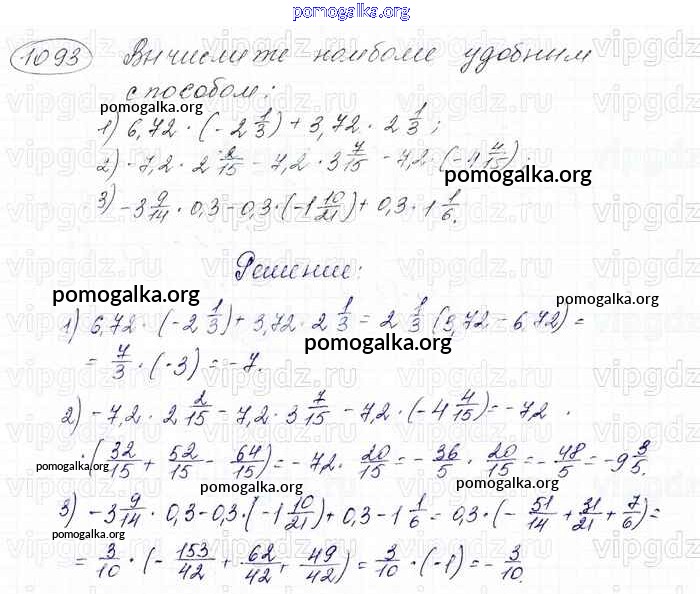 pomogalka.org
1093 Вычислите наиболее удобным
способом:
pomogalka.org
1) 6,72 · (-2 1/3) + 3,72 · 2 1/3;
2) -7,2 · 2 2/15 - 7,2 · 3 7/15 - 7,2 · (-4 4/15);
pomogalka.org
3) -3 9/14 · 0,3 - 0,3 · (-1 10/21) + 0,3 · 1 1/6.
Решение:
pomogalka.org
pomogalka.org
1) 6,72 · (-2 1/3) + 3,72 · 2 1/3 = 2 1/3 (3,72 - 6,72) =
pomogalka.org
= 7/3 · (-3) = -7.
2) -7,2 · 2 2/15 - 7,2 · 3 7/15 - 7,2 · (-4 4/15) = -7,2 ·
pomogalka.org
· (32/15 + 52/15 - 64/15) = -7,2 · 20/15 = -36/5 · 20/15 = -48/5 = -9 3/5.
pomogalka.org
pomogalka.org
3) -3 9/14 · 0,3 - 0,3 · (-1 10/21) + 0,3 - 1 1/6 = 0,3 · (-51/14 + 31/21 + 7/6) =
pomogalka.org
= 3/10 · (-153/42 + 62/42 + 49/42) = 3/10 · (-1) = -3/10.
pomogalka.org